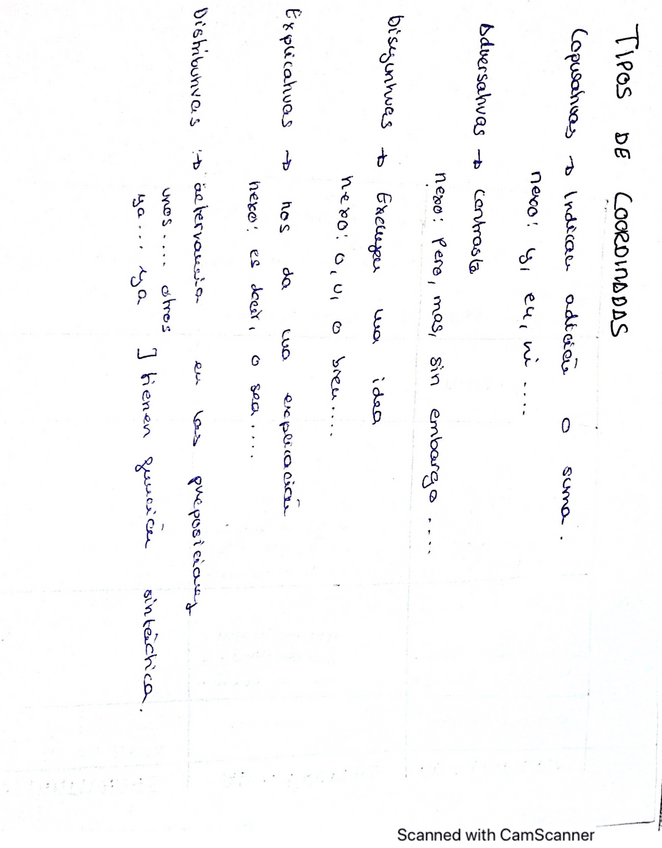 TIPOS DE COORDINADAS
Copulativas → Indican adición o suma.
nexo: y, eu, ni ....
Adversativas → contraste
nexo: Pero, mas, sin embargo ....
Disyuntivas → Excluyen una idea
nexo: o, u, o bien....
Explicativas → nos da una explicación
nexo: es decir, o sea....
Distributivas → alternancia en las preposiciones
unos.... otros
ya... ya ] tienen función sintáctica.
Scanned with CamScanner